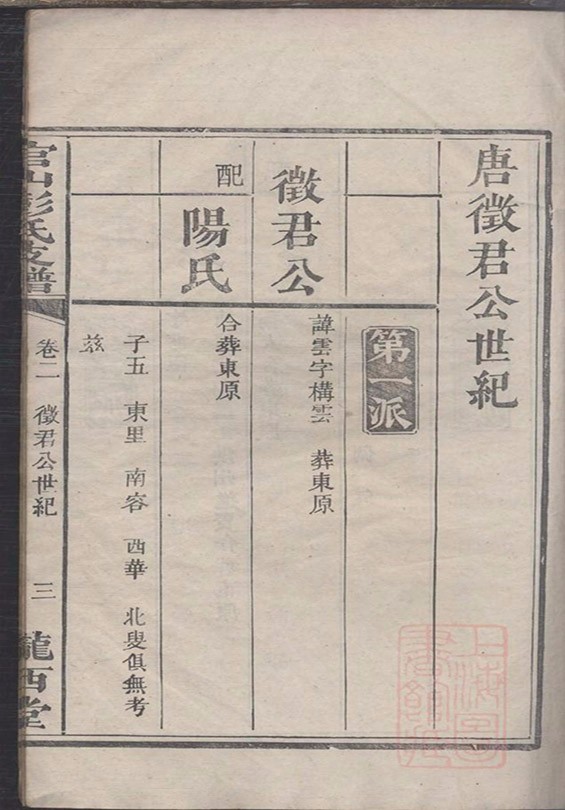 唐徵君公世紀
第一派
徵君公
諱雲字構雲 葬東原
配
陽氏
合葬東原
子五 東里 南容 西華 北叟俱無考
茲
官山彭氏支譜
卷二 徵君公世紀
三
隴西堂
上海圖書館藏